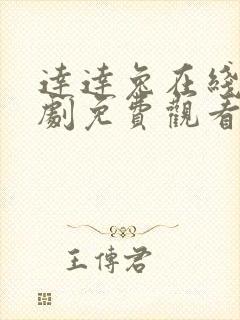 達達兔在綫
劇免費觀看
王傳君